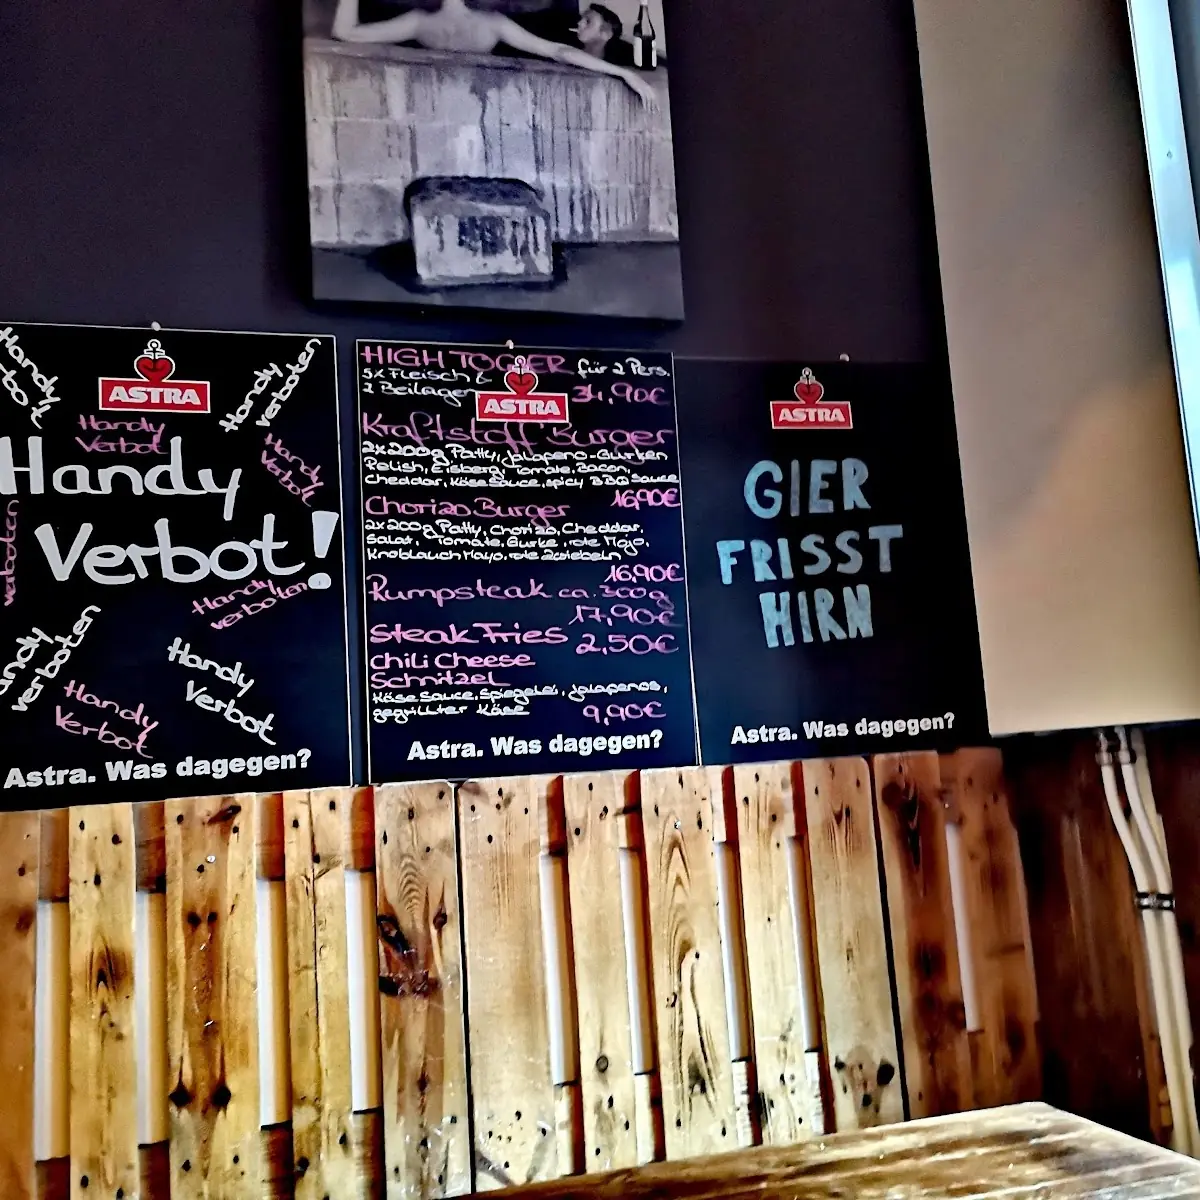 Handy
Verbot
Handy
verboten
ASTRA
Handy
Verbot
Handy
Verbot
Handy
Verbot!
verboten
Handy
verboten
Handy
verboten
Handy
Verbot
Handy
Verbot
Astra. Was dagegen?
HIGH TOGER für 2 Pers.
5x Fleisch &
2 Beilagen 34,90€
ASTRA
Kraftstoff Burger
2x200g Patty, Jalapeno-Gurken
Relish, Eisberg, Tomate, Bacon,
Cheddar, Käse Sauce, spicy BBQ Sauce
16,90€
Chorizo Burger
2x200g Patty, Chorizo, Cheddar,
Salat, Tomate, Gurke, rote Mojo,
Knoblauch Mayo, rote Zwiebeln
16,90€
Rumpsteak ca. 300g
17,90€
Steak Fries 2,50€
Chili Cheese
Schnitzel
Käse Sauce, Spiegelei, Jalapenos,
gegrillter Käse
9,90€
Astra. Was dagegen?
ASTRA
GIER
FRISST
HIRN
Astra. Was dagegen?